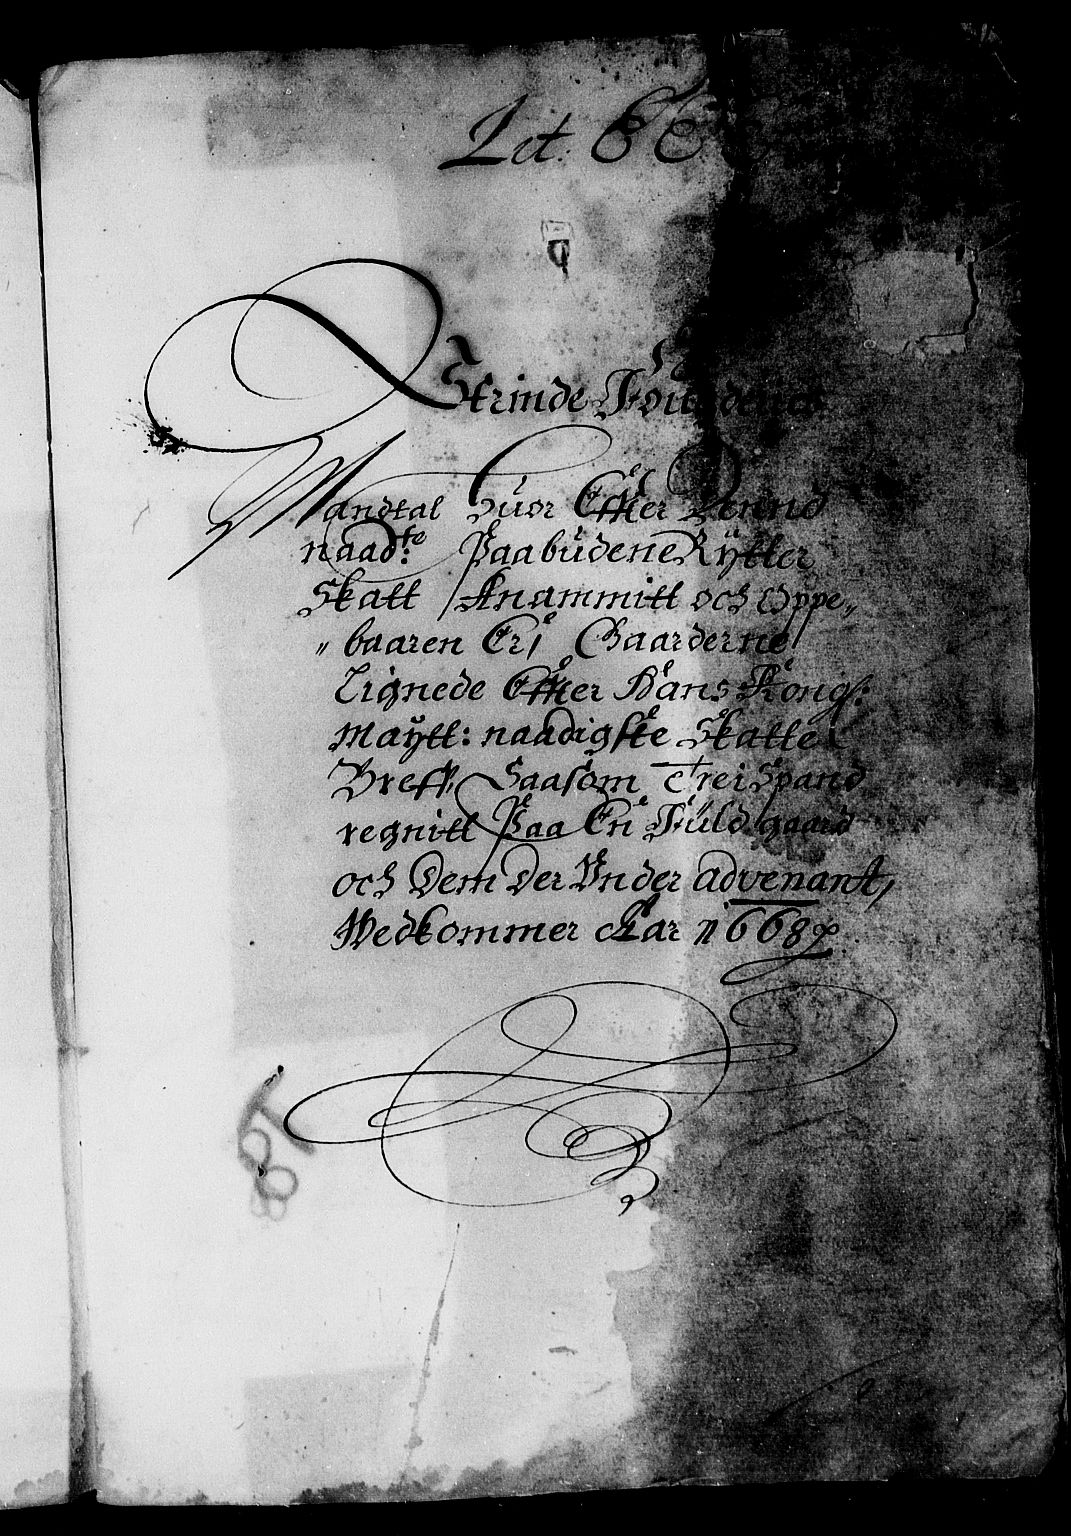 Lit: CCC
Strinde Fougderies
Mandtal Huor Effter Denne
naad:ste Paabudene Rÿtter
Skatt Anammitt och Oppe„
„baaren Er, Gaarderne
Lignede Effter Hans Kongl:
Maÿtt: naadigste Skatte
Breff, Saasom Trei Spand
regnitt Paa En Fuld gaard
och Dem Der Under advenant,
Vedkommer Aar 1668